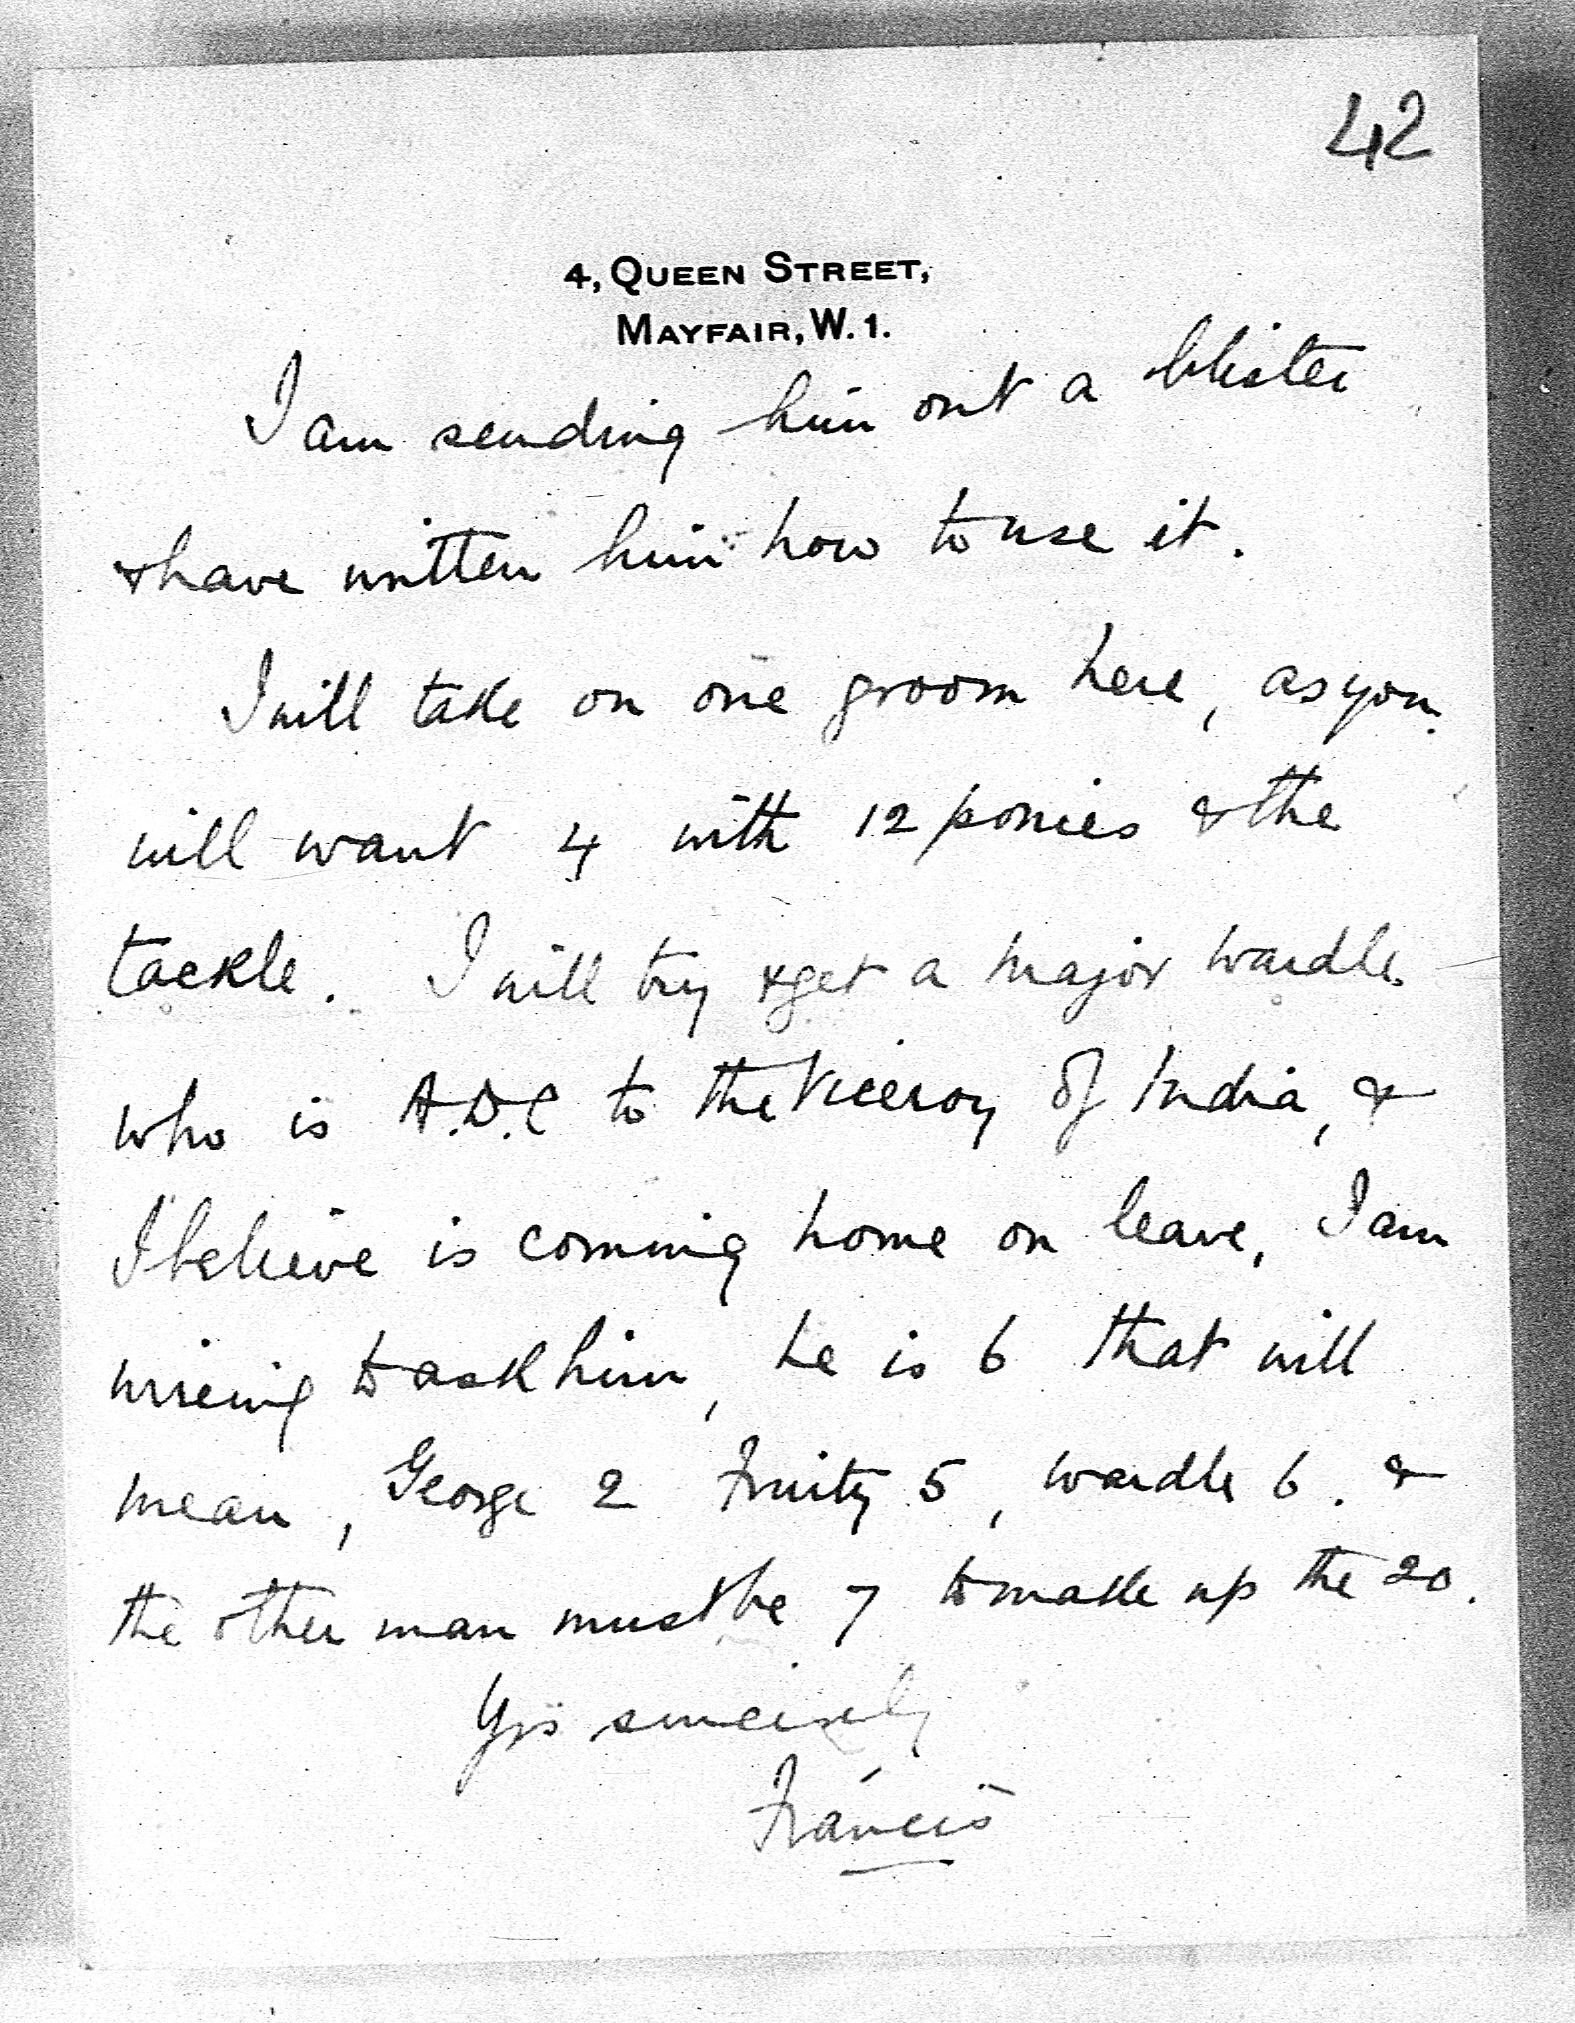 42
4, QUEEN STREET,
MAYFAIR, W. 1.
I am sending him out a blister
& have written him how to use it.
I will take on one groom here, as you
will want 4 with 12 ponies & the
tackle. I will try & get a Major Wardle
who is A.D.C to the Viceroy of India, &
I believe is coming home on leave, I am
wireing to ask him, he is 6 that will
mean, George 2 Fruity 5, Wardle 6. &
the other man must be 7 to make up the 20.
Yrs sincerely
Francis